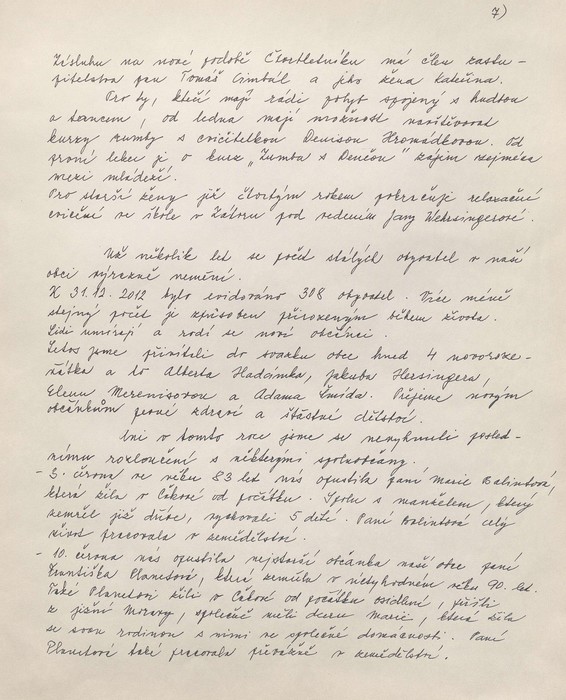 7)
Zásluhu na nové podobě Čtvrtletníku má člen zastu-
pitelstva pan Tomáš Cimbál a jeho žena Kateřina.
Pro ty, kteří mají rádi pohyb spojený s hudbou
a tancem, od ledna mají možnost navštěvovat
kurzy zumby s cvičitelkou Denisou Hromádkovou. Od
první lekce je o kurz „Zumba s Denčou" zájem zejména
mezi mládeží.
Pro starší ženy již čtvrtým rokem pokračuje relaxační
cvičení ve škole v Zátoru pod vedením Jany Wehrsingerové.
Už několik let se počet stálých obyvatel v naší
obci výrazně nemění.
K 31.12. 2012 bylo evidováno 308 obyvatel. Více méně
stejný počet je způsoben přirozeným během života.
Lidi umírají a rodí se noví občánci.
Letos jsme přivítali do svazku obce hned 4 novoroze-
ňátka a to Alberta Hladímka, Jakuba Hersingera,
Elenu Merenisovou a Adama Šmída. Přejeme novým
občánkům pevné zdraví a šťastné dětství.
Ani v tomto roce jsme se nevyhnuli posled-
nímu rozloučení s některými spoluobčany.
- 3. června ve věku 83 let nás opustila paní Marie Balintová,
která žila v Čakové od počátku. Spolu s manželem, který
zemřel již dříve, vychovali 5 dětí. Paní Balintová celý
život pracovala v zemědělství.
- 10. června nás opustila nejstarší občanka naší obce paní
Františka Planetová, která zemřela v úctyhodném věku 90. let.
Také Planetovi žili v Čakové od počátku osídlení, přišli
z jižní Moravy, společně měli dceru Marii, která žila
se svou rodinou s nimi ve společné domácnosti. Paní
Planetová také pracovala převážně v zemědělství.